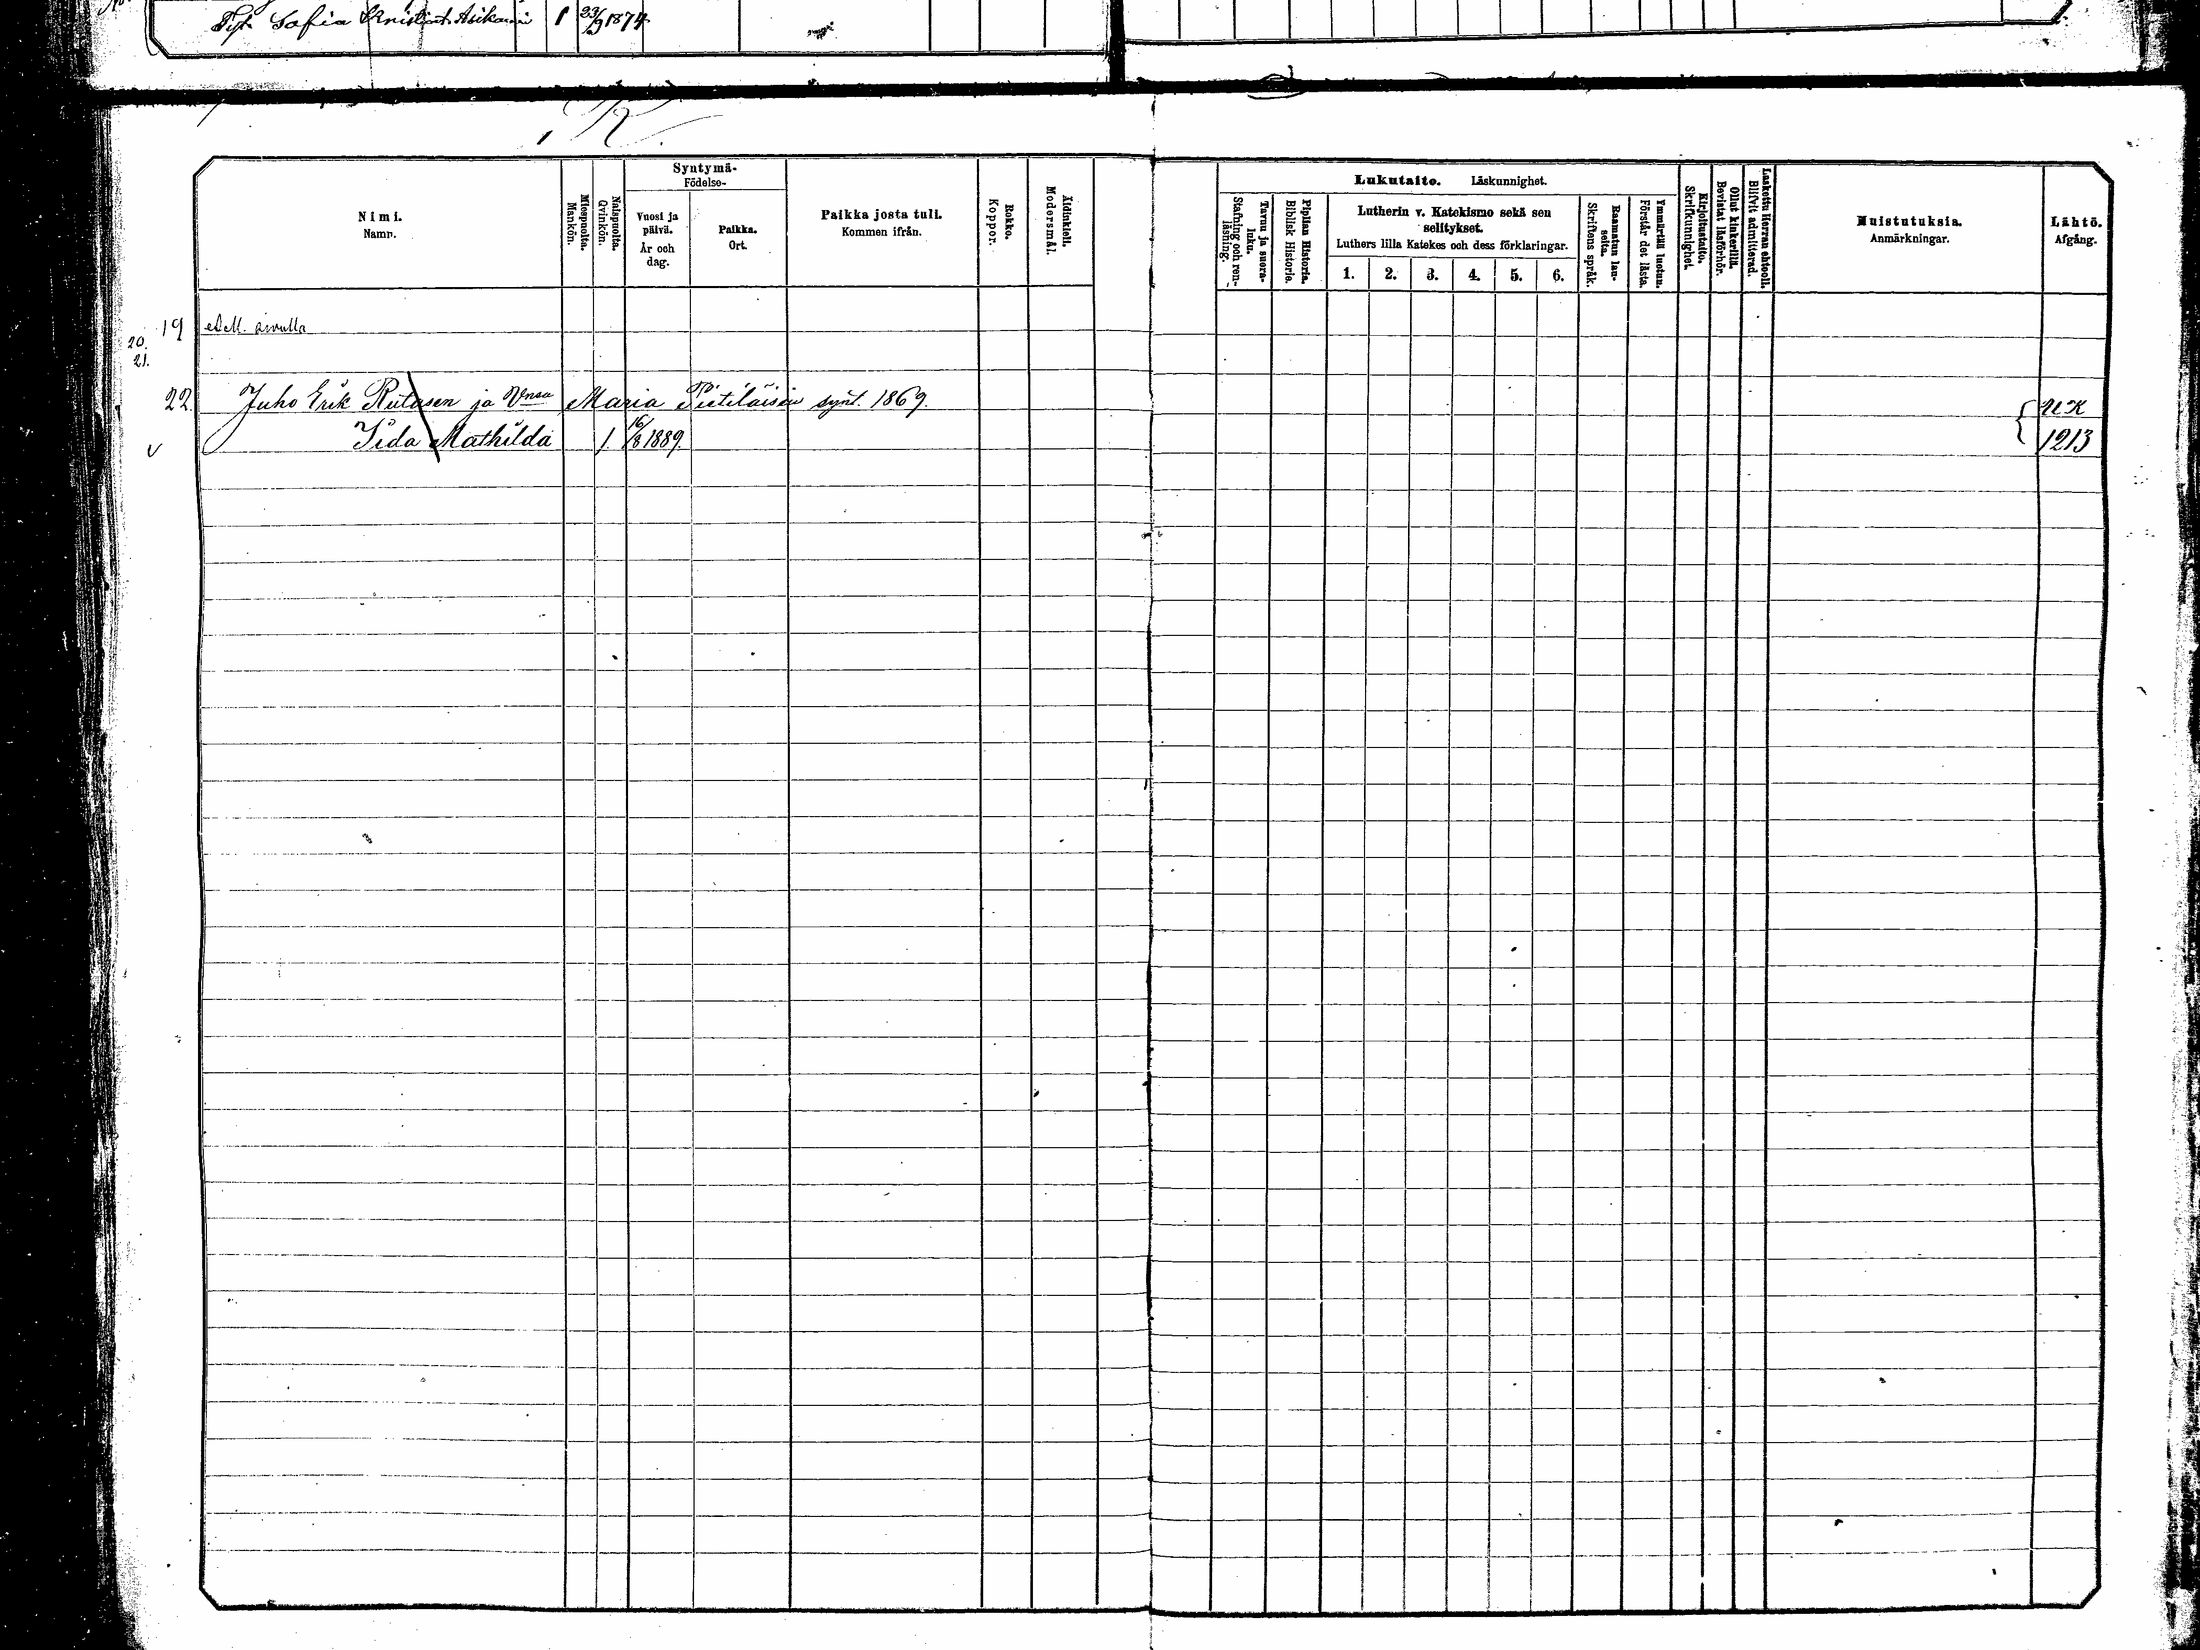 Tyt. Sofia Kristina Asikainen 1 23/9 1874
K.
Syntymä-
Födelse-
Nimi.
Namn.
Miespuolta.
Mankön.
Naispuolta.
Qvinkön.
Vuosi ja päivä.
År och dag.
Paikka.
Ort.
Paikka josta tuli.
Kommen ifrån.
Rokko.
Koppor.
Äidinkieli.
Modersmål.
Lukutaito. Läskunnighet.
Tavuu ja suora-luku.
Stafning och ren-läsning.
Piplian Historia.
Biblisk Historie.
Lutherin v. Katekismo sekä sen
selitykset.
Luthers lilla Katekes och dess förklaringar.
1. 2. 3. 4. 5. 6.
Raamatun lau-seita.
Skriftens språk.
Ymmärtää luetun.
Förstår det lästa.
Kirjoitustaito.
Skrifkunnighet.
Ollut kinkerillä.
Bevistat läsförhör.
Laskettu Herran ehtooll.
Blifvit admitterad.
Muistutuksia.
Anmärkningar.
Lähtö.
Afgång.
19 edell. sivulla
20.
21.
22. Juho Erik Rutasen ja Vmsa Maria Pietiläisen synt. 1869. UK
Iida Mathilda 1. 16/8 1889. 1213